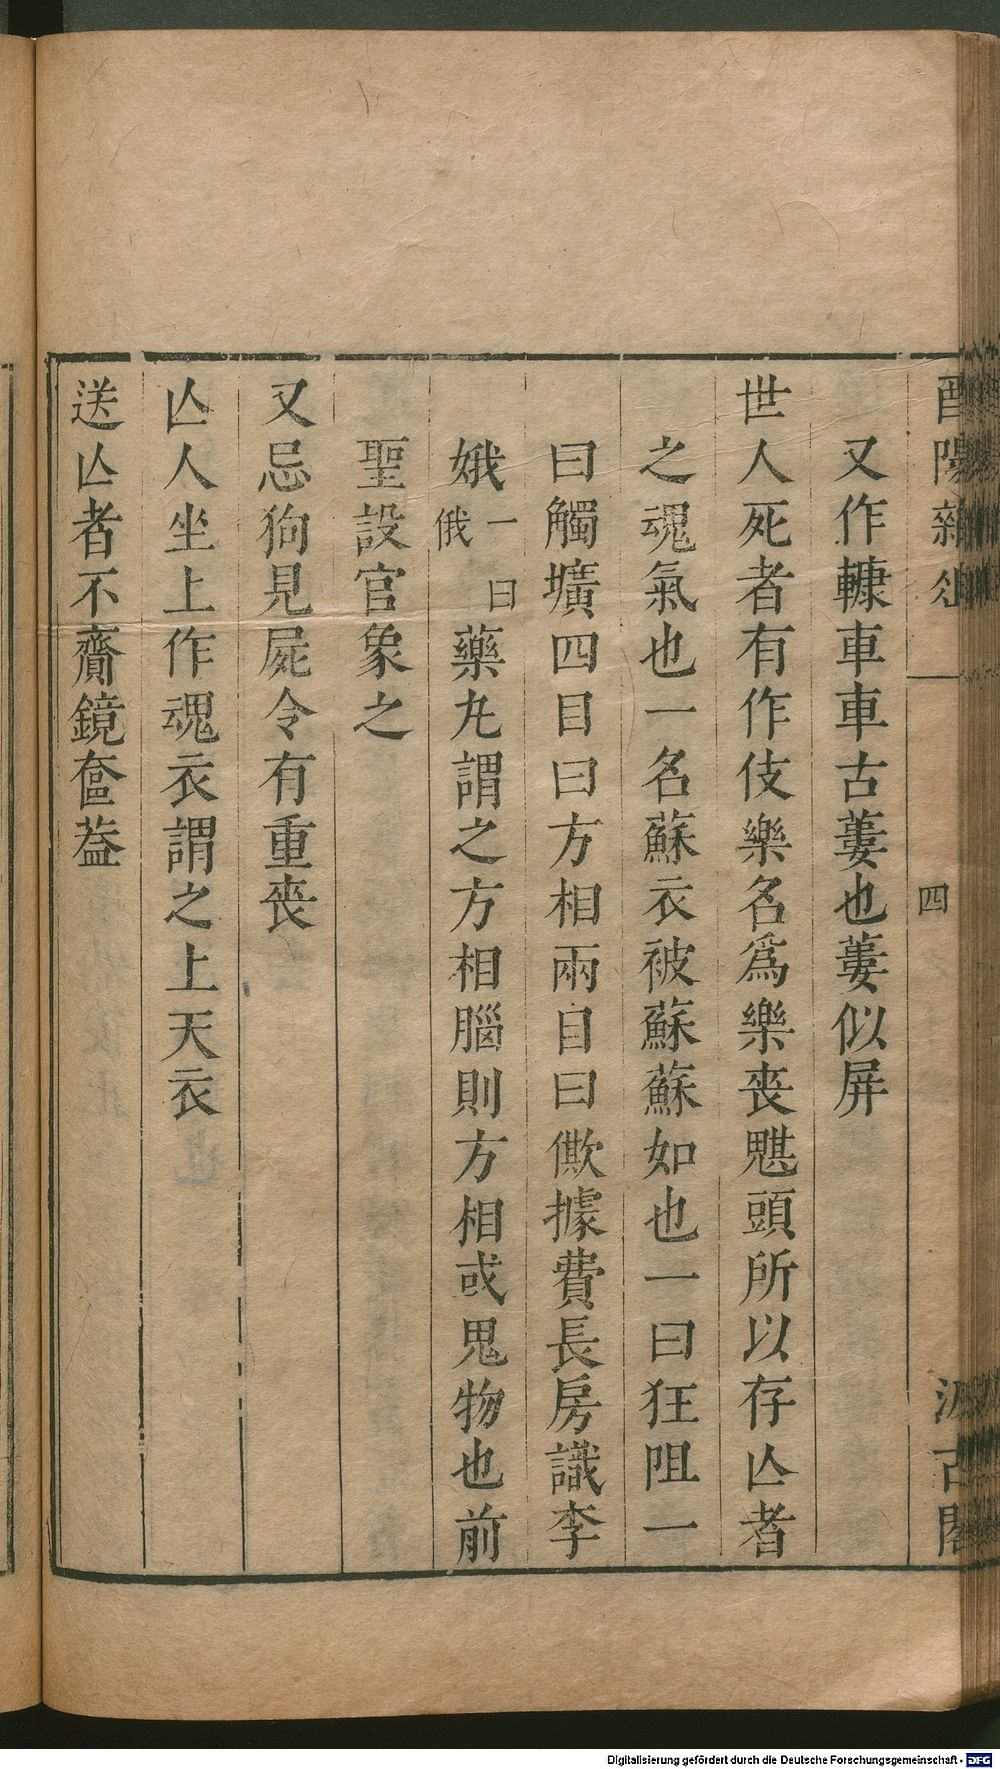 酉陽雜俎 四 汲古閣
又作轝車車古蔞也蔞似屏
世人死者有作伎樂名爲樂喪魌頭所以存亾者
之魂氣也一名蘇衣被蘇蘇如也一曰狂阻一
曰觸壙四目曰方相兩目曰僛據費長房識李
娥一曰俄藥丸謂之方相腦則方相或鬼物也前
聖設官象之
又忌狗見屍令有重喪
亾人坐上作魂衣謂之上天衣
送亾者不齎鏡奩葢
Digitalisierung gefördert durch die Deutsche Forschungsgemeinschaft - DFG